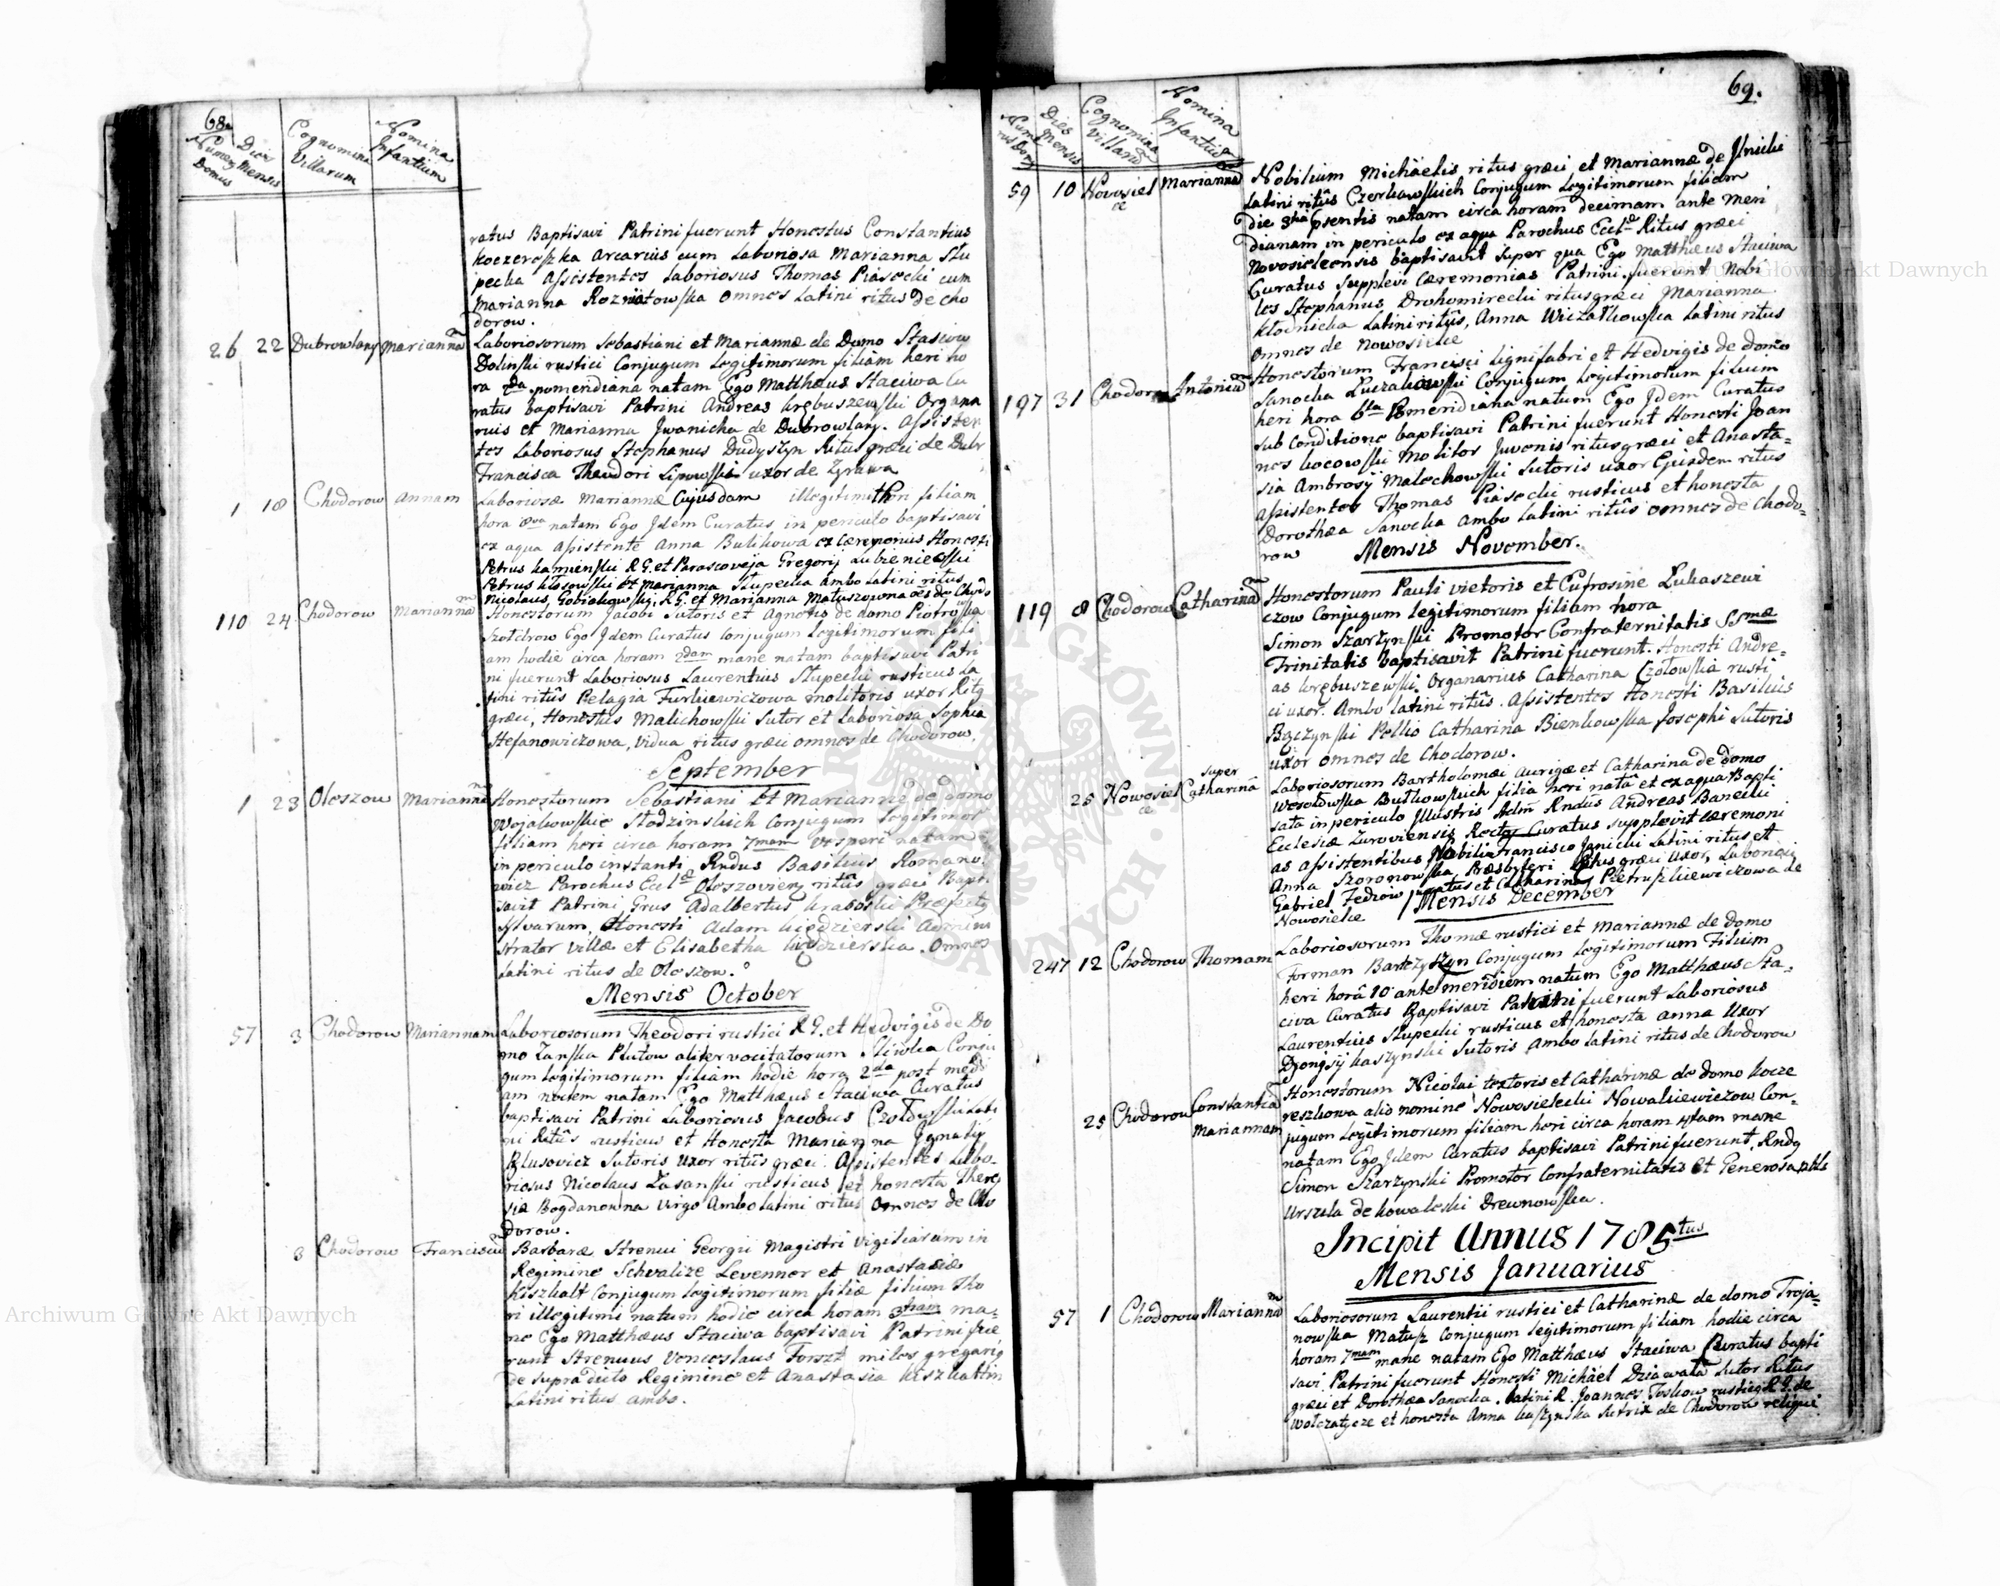 68.
Numerus Domus
Dies Mensis
Cognomina Villarum
Nomina Infantium
ratus Baptisavi Patrini fuerunt Honestus Constantius
Koczeroszka Arcarius cum Laboriosa Marianna Stu
pecka Assistentes Laboriosus Thomas Piasecki cum
Marianna Rozniatowska omnes Latini ritus de Cho
dorow.
26 22 Dubrowlany Mariannam Laboriosorum Sebastiani et Mariannæ de Domo Stasiow
Dolinski rustici Conjugum Legitimorum filiam heri ho
ra 2da pomeridiana natam Ego Matthæus Staciwa Cu
ratus baptisavi Patrini Andreas Krębuszewski Organa
rius et Marianna Jwanicka de Dubrowlany. Assisten
tes Laboriosus Stephanus Dudyszyn Ritus græci de Dubr
Francisca Theodori Lipowski uxor de Zyrawa
1 18 Chodorow Annam Laboriosæ Mariannæ Cujusdam illegitimi thori filiam
hora 8va natam Ego Jdem Curatus in periculo baptisavi
ex aqua Assistente Anna Bulikowa ex Ceremoniis Honesti
Petrus Kamienski R.G. et Parascoveja Gregorij Lubieniecki
Petrus Kłosowski et Marianna Stupecka ambo Latini ritus
Nicolaus R.G. et Marianna Matuszowna oes de Chodo
110 24 Chodorow Mariannam Honestorum Jacobi Sutoris et Agnetis de domo Piotrowska
Szołdrow Ego Jdem Curatus Conjugum Legitimorum fili
am hodie circa horam 2dam mane natam baptisavi Patri
ni fuerunt Laboriosus Laurentius Stupecki rusticus La
tini ritûs Pelagia Furkiewiczowa molitoris uxor Ritq
græci, Honestus Malichowski Sutor et Laboriosa Sophia
Stefanowiczowa, vidua ritus græci omnes de Chodorow.
September
1 23 Oleszow Mariannam Honestorum Sebastiani et Mariannæ de domo
Wojakowskie Słodzinskich Conjugum Legitimor
filiam heri circa horam 7mam vesperi natam
in periculo instanti Rndus Basilius Romano
wicz Parochus Eccl-æ Oleszovien, ritus græci Bapti
savit Patrini Grus Adalbertus Præfect
sylvarum, Honesti Adam Kiedzierski Admini
strator villæ et Elisabetha Kiedzierska. Omnes
Latini ritus de Oleszow.
Mensis October
57 3 Chodorow Mariannam Laboriosorum Theodori rustici R.G. et Hedvigis de Do
mo Zanska Plutow aliter vocitatorum Sliwka Conju
gum Legitimorum filiam hodie hora 2da post medi
am noctem natam Ego Matthæus Staciwa Curatus
baptisavi Patrini Laboriosus Jacobus Lati
ni Ritûs rusticus et Honesta Marianna Jgnatij
Sutoris uxor ritûs græci. Assistentes Labo-
riosus Nicolaus Zasanski rusticus et honesta There
sia Bogdanowna Virgo Ambo Latini ritus Omnes de Cho
dorow.
3 Chodorow Franciscum Barbaræ Strenui Georgii Magistri vigiliarum in
Regimine Schvalize Levenner et Anastasiæ
Kiszhalt Conjugum Legitimorum filiæ filium Tho
ri illegitimi natum hodie circa horam 3tiam ma-
ne Ego Matthæus Staciwa baptisavi Patrini fue
runt Strenuus Venceslaus Forszt miles gregarig
de supra dicto Regimine et Anastasia
Latini ritus ambo.
69.
Numerus Domq
Dies Mensis
Cognomina Villarum
Nomina Infantium
59 10 Novosielce Mariannam Nobilium Michäelis ritus græci et Mariannæ de Jlnicki
Latini ritûs Czerkawskich Conjugum Legitimorum filiam
die 3tia psentis natam circa horam decimam ante meri
dianam in periculo ex aqua Parochus Eccl-æ Ritus græci
Novosielcensis baptisavit super qua Ego Matthæus Staciwa
Curatus supplevi Cæremonias Patrini fuerunt Nobi
les Stephanus Drohomirecki ritus græci Marianna
Kłodnicka Latini ritûs, Anna Wiczałkowska Latini ritus
omnes de Nowosielce
197 31 Chodorow Antonium Honestorum Francisci Lignifabri et Hedvigis de domo
Sanocka Luczakowski Conjugum Legitimorum filium
heri hora 6ta Pomeridiana natum Ego Jdem Curatus
sub Conditione baptisavi Patrini fuerunt Honesti Joan
nes Kocowski Molitor Juvenis ritus græci et Anasta-
sia Ambrosij Malechowski Sutoris uxor Ejusdem ritus
assistentes Thomas Piasecki rusticus et honesta
Dorothæa Sanocka ambo Latini ritûs omnes de Chodo-
row
Mensis November.
119 8 Chodorow Catharinam Honestorum Pauli vietoris et Eufrosinæ Lukaszewi
czow Conjugum Legitimorum filiam hora
Simon Szarzynski Promotor Confraternitatis SSmæ
Trinitatis baptisavit Patrini fuerunt. Honesti Andre-
as Krębuszewski Organarius Catharina Czołowska rusti
ci uxor. Ambo Latini ritûs. Assistentes Honesti Basilius
Bączynski Pellio Catharina Bienkowska Josephi Sutoris
uxor omnes de Chodorow.
25 Nowosielce super Catharinâ Laboriosorum Bartholomæi Aurigæ et Catharina de domo
Wesołowska Butkowskich filia heri natâ et ex aqua Bapti
sata in periculo Jllustris Adm Rndus Andreas Banecki
Ecclesiæ Zuroviensis Rector Curatus supplevit cæremoni
as assistentibus Nobili Francisco Janicki Latini ritus et
Anna Szoronowska, Præsbyteri ritus græci uxor, Laboriosi
Gabriel Fedziow juratus et Catharina Pietruszkiewiczowa de
Nowosielce
Mensis December
247 12 Chodorow Thomam Laboriosorum Thomæ rustici et Mariannæ de domo
Forman Bartczyszyn Conjugum Legitimorum Filium
heri horâ 10 ante meridiem natum Ego Matthæus Sta-
ciwa Curatus Baptisavi Patrini fuerunt Laboriosus
Laurentius Stupecki rusticus et honesta Anna Uxor
Dyonisij Kaszynski Sutoris Ambo Latini ritus de Chodorow
25 Chodorow Constantiam Mariannam Honestorum Nicolai textoris et Catharinæ de domo Kocze
reszkowa alio nomine Nowosielecki Nowakiewiczow Con-
jugum Legitimorum filiam heri circa horam 4tam mane
natam Ego Jdem Curatus baptisavi Patrini fuerunt, Rndq
Simon Szarzynski Promotor Confraternitatis et Generosa
Urszula de Kowaleski Drewnowska.
Incipit Annus 1785tus
Mensis Januarius
57 1 Chodorow Mariannam Laboriosorum Laurentii rustici et Catharinæ de domo Troja-
nowska Matusz Conjugum Legitimorum filiam hodie circa
horam 7mam mane natam Ego Matthæus Staciwa Curatus bapti
savi. Patrini fuerunt Honesti Michäel Dziawała Sutor Ritus
græci et Dorothæa Sanocka. Latini R. Joannes Toskow rusticq R.G. de
Wołczatycze et honesta Anna Kaszynska Sutrix de Chodorow reliqui
Archiwum Główne Akt Dawnych
Archiwum Główne Akt Dawnych
ARCHIWUM GŁÓWNE AKT DAWNYCH